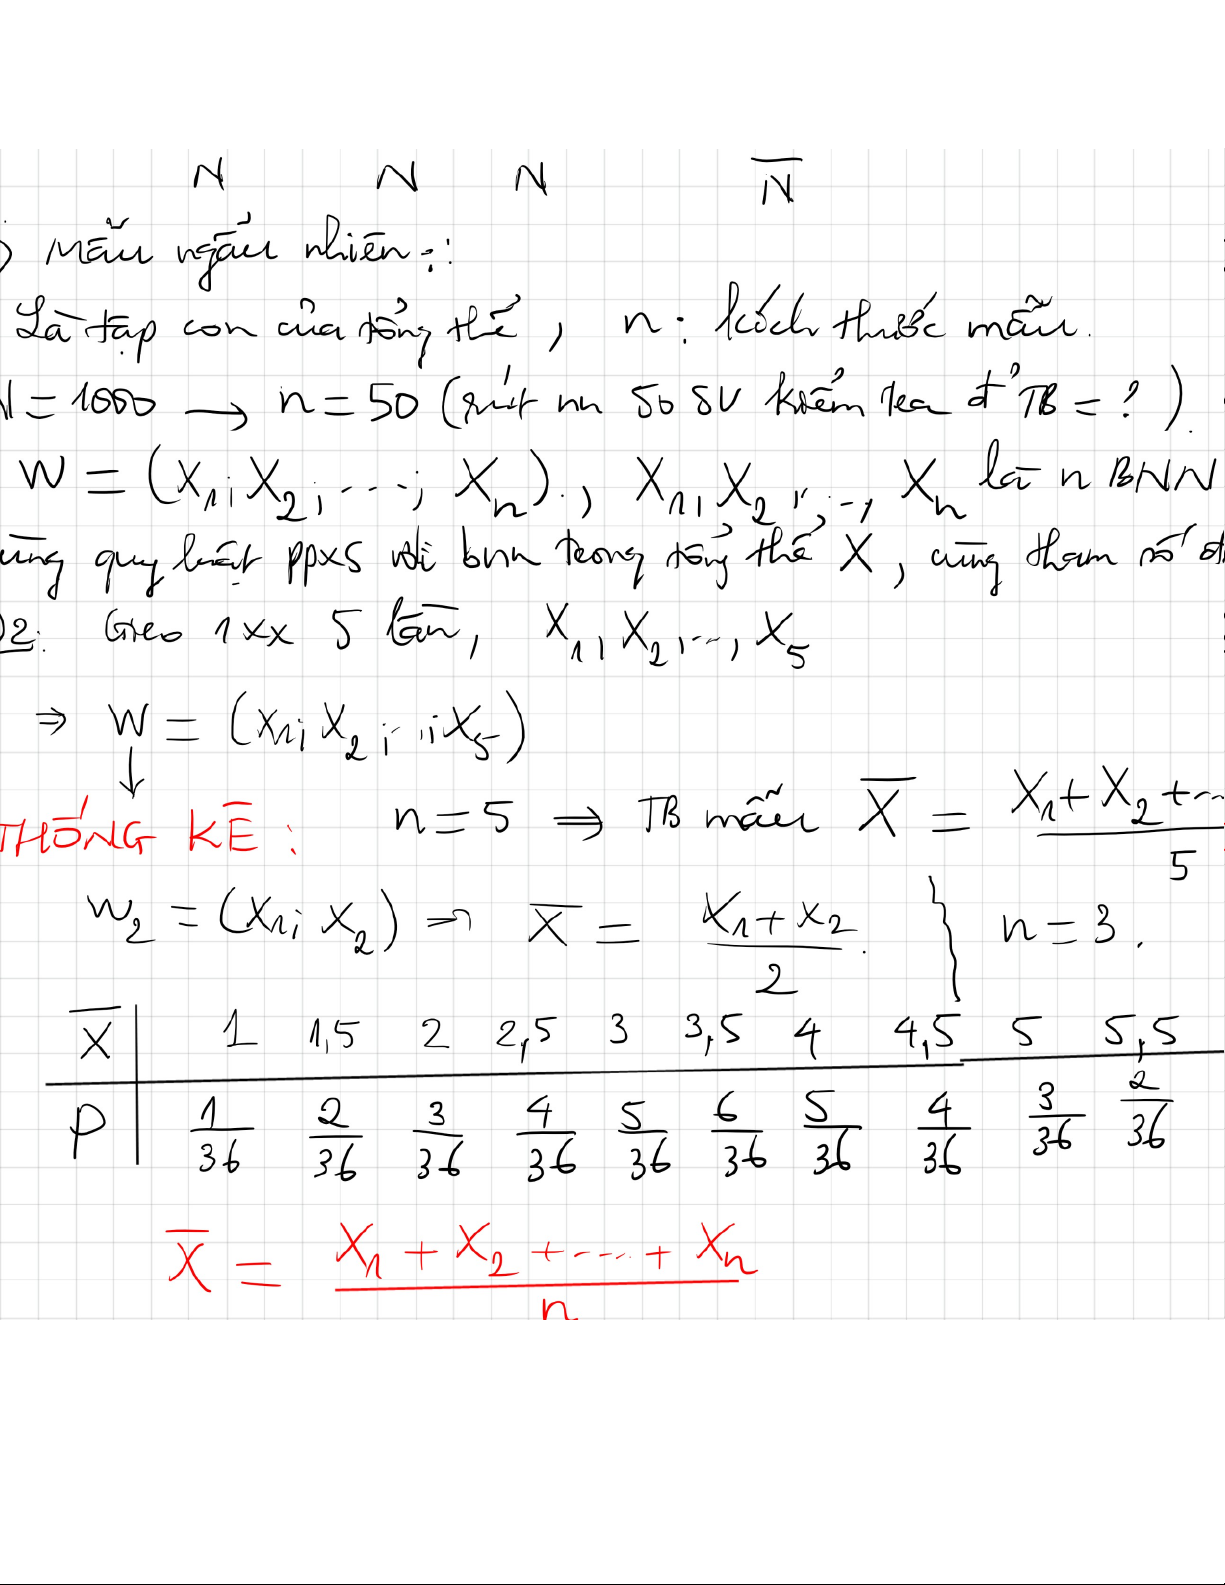 N N N N̅
) Mẫu ngẫu nhiên :
Là tập con của tổng thể, n: kích thước mẫu.
N = 1000 → n = 50 (rút nn 50 SV kiểm tra đ' TB = ?).
W = (X₁; X₂; ...; Xₙ)., X₁, X₂, ..., Xₙ là n BNN
cùng quy luật ppxs với bnn trong tổng thể X, cùng tham số
D2: Gieo 1 xx 5 lần, X₁, X₂, ..., X₅
⇒ W = (X₁; X₂; ..; X₅)
↓
THỐNG KÊ: n = 5 ⇒ TB mẫu X̅ = (X₁ + X₂ + ... / 5
W₂ = (X₁; X₂) ⇒ X̅ = (X₁ + X₂) / 2. } n = 3.
X̅ | 1 1,5 2 2,5 3 3,5 4 4,5 5 5,5
P | 1/36 2/36 3/36 4/36 5/36 6/36 5/36 4/36 3/36 2/36
X̅ = (X₁ + X₂ + .... + Xₙ) / n